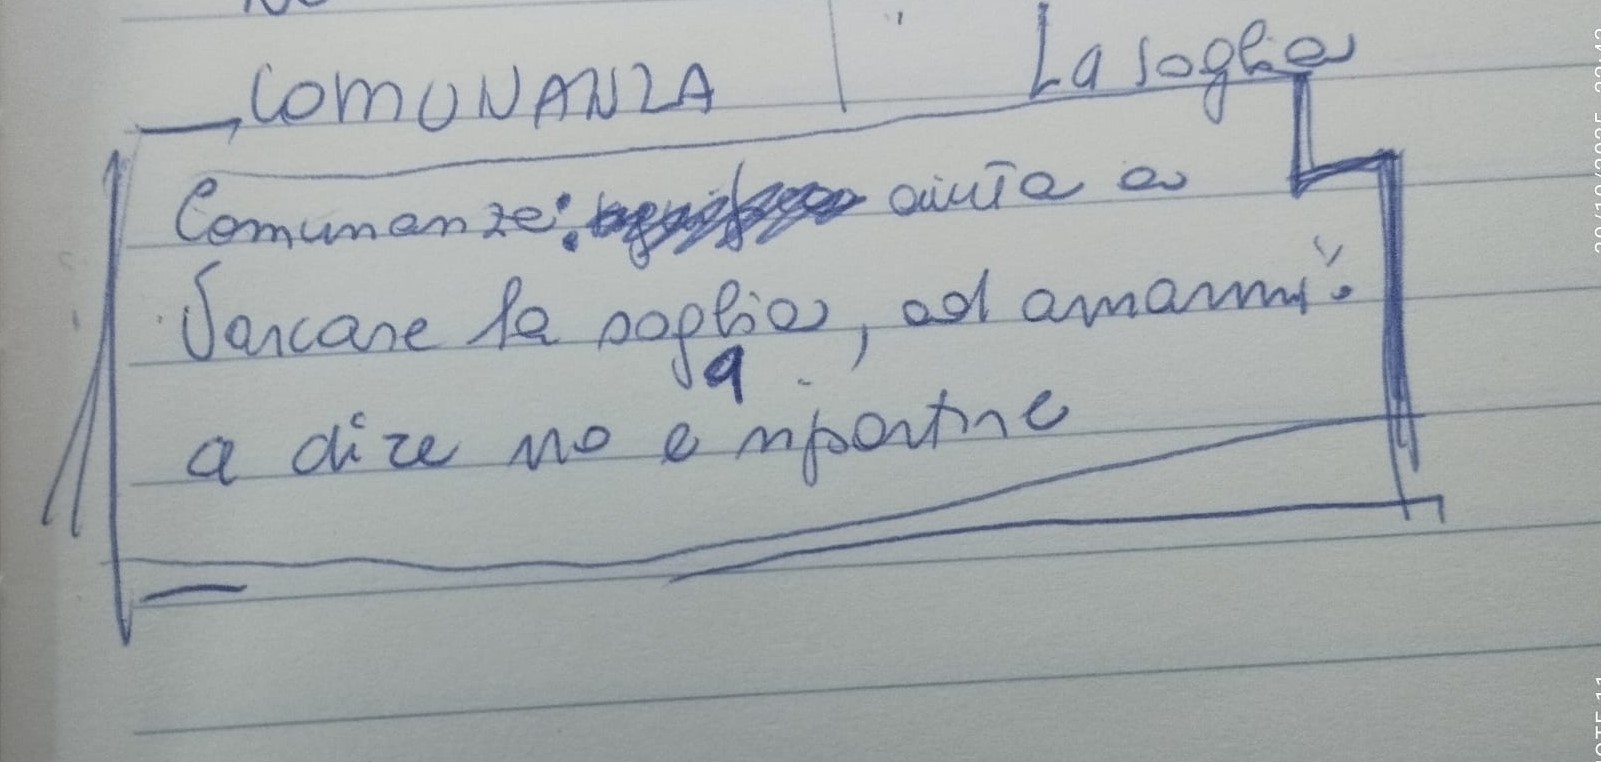 COMUNANZA La soglia
Comunanze: aiuta a
Varcare la soglia, ad amarmi
a
a dire no e ripartire